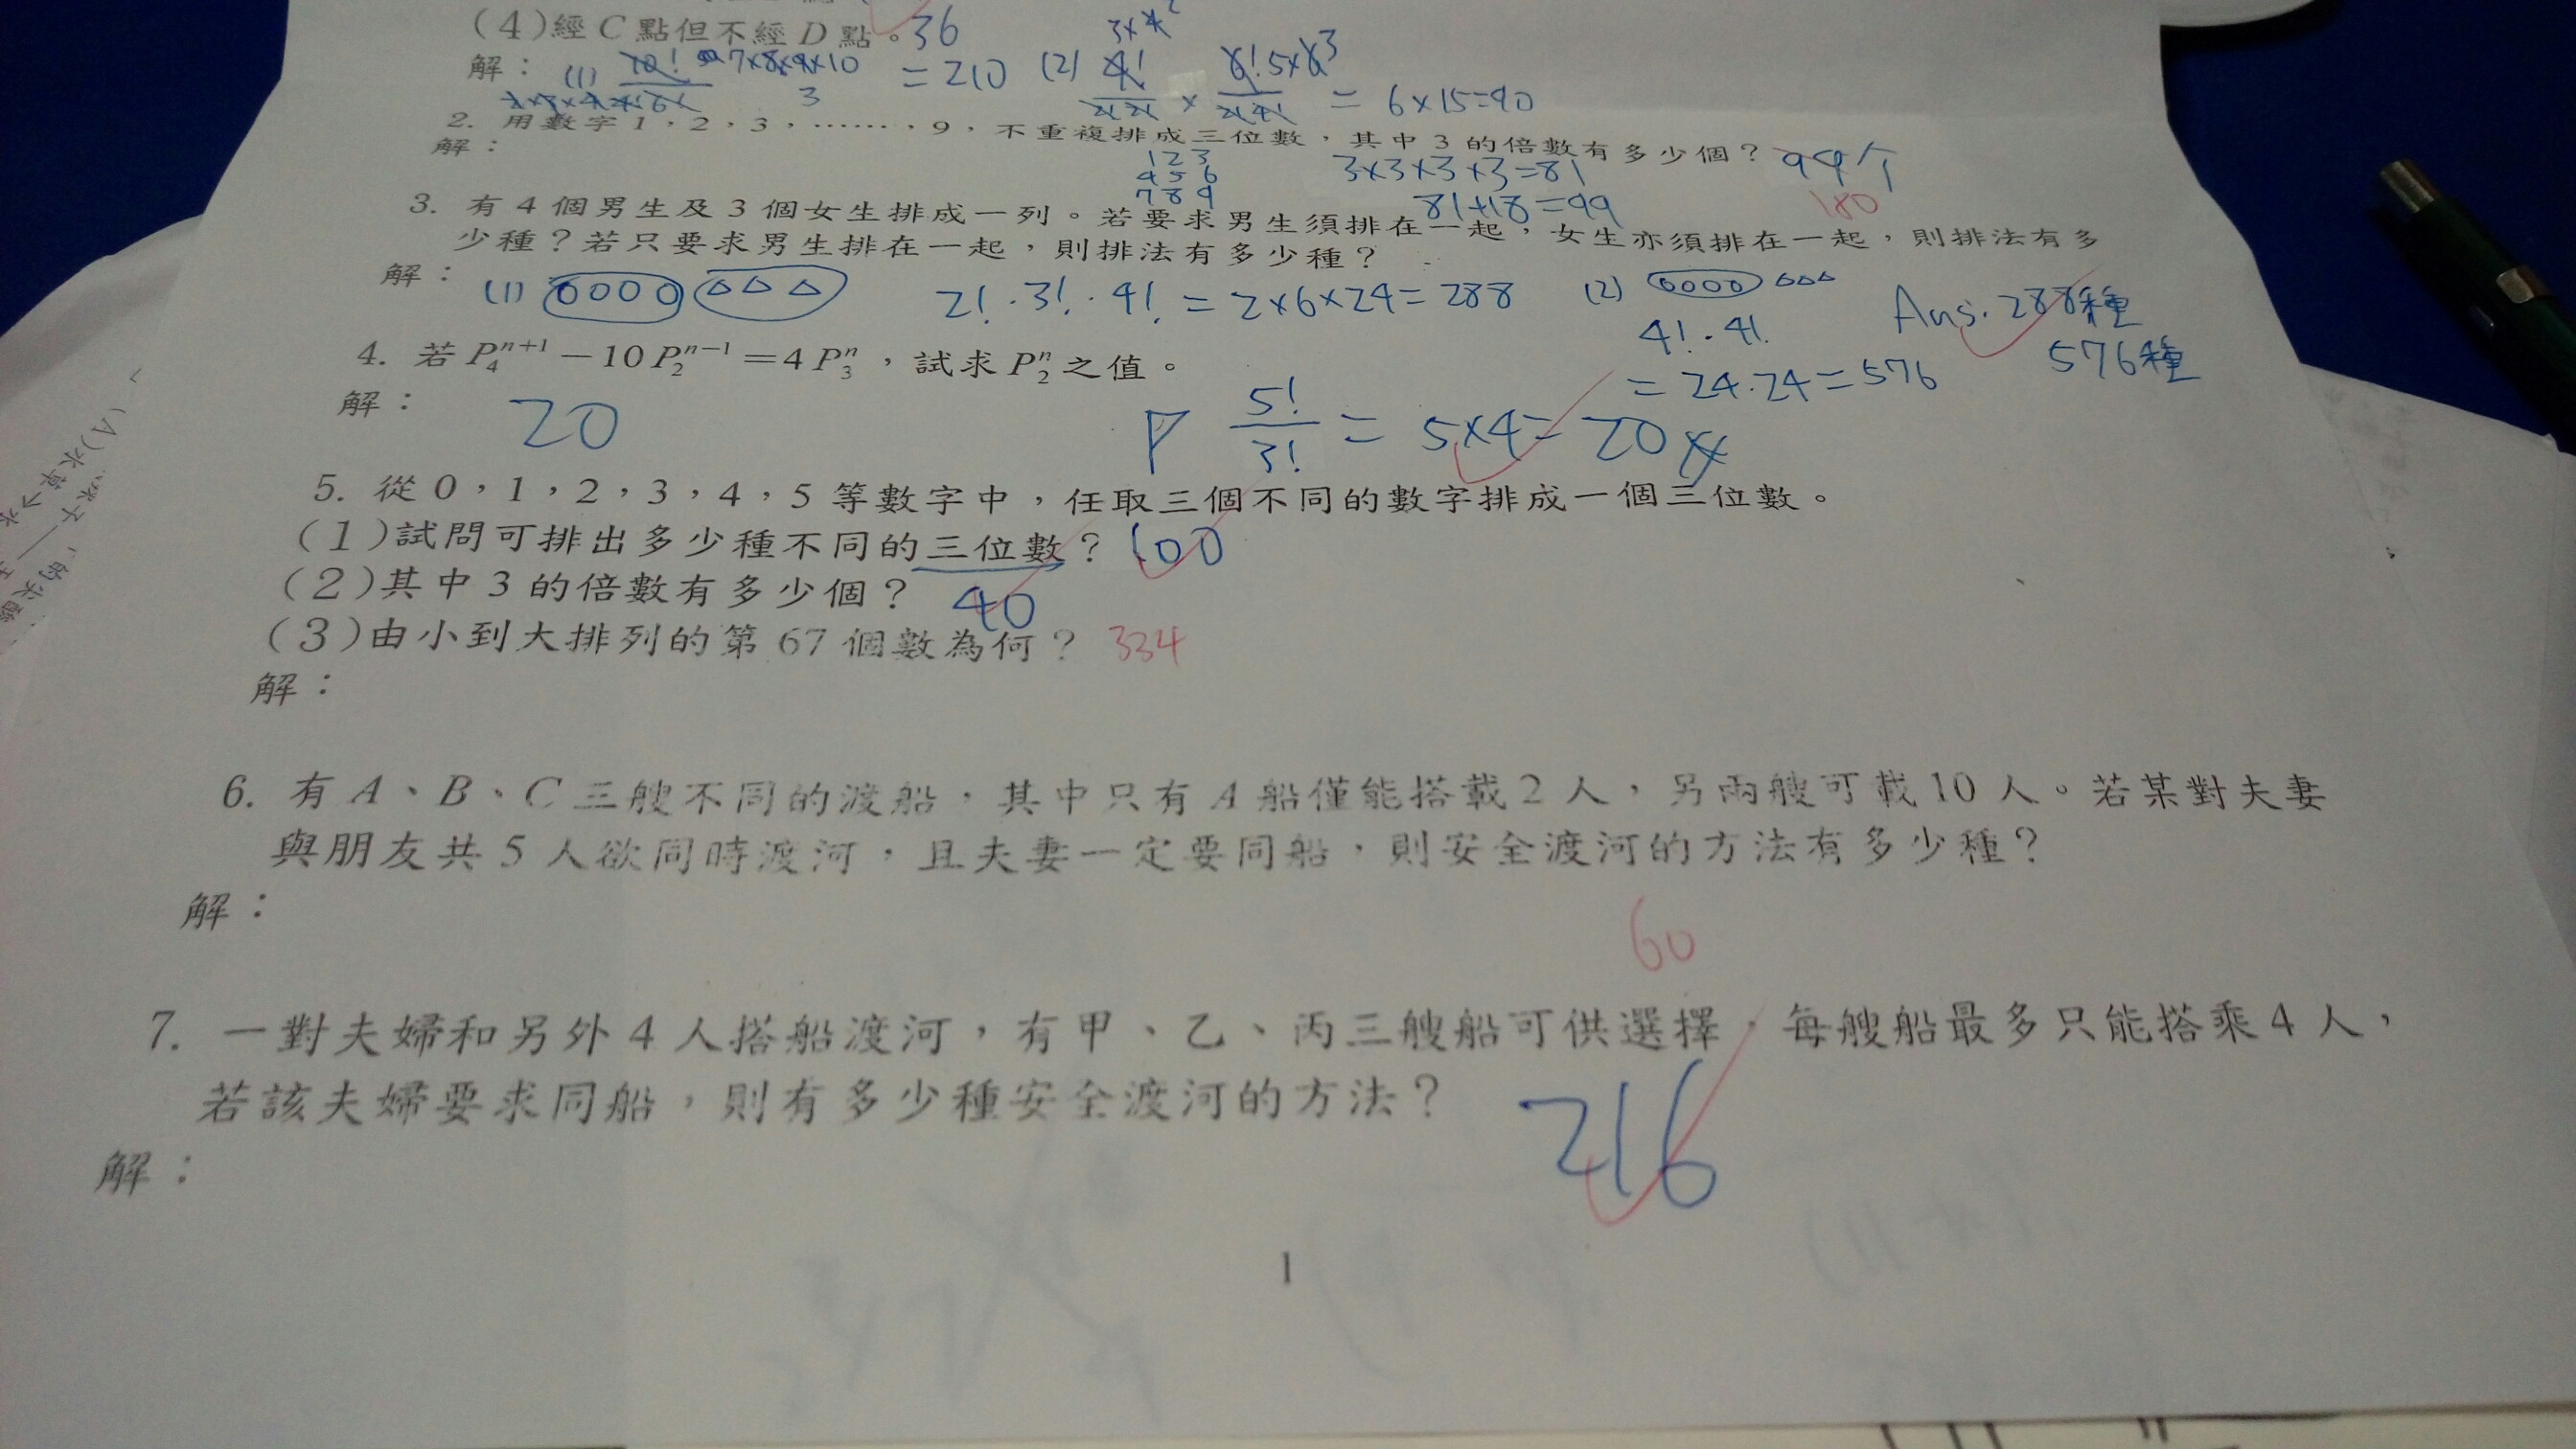 (4)經C點但不經D點。36
解：(1) 10! 7×8×9×10 = 210 (2) 4! × 6! 5×6 3 = 6×15=90
2. 用數字1，2，3，……，9，不重複排成三位數，其中3的倍數有多少個？99个
解： 123 3×3×3×3=81
456
789 81+18=99 180
3. 有4個男生及3個女生排成一列。若要求男生須排在一起，女生亦須排在一起，則排法有多
少種？若只要求男生排在一起，則排法有多少種？
解：(1) 2!·3!·4! = 2×6×24=288 (2) Ans. 288種
4!·4! 576種
=24·24=576
4. 若P₄ⁿ⁺¹－10P₂ⁿ⁻¹＝4P₃ⁿ，試求P₂ⁿ之值。
解： 20 P 5!/3! = 5×4=20
5. 從0，1，2，3，4，5等數字中，任取三個不同的數字排成一個三位數。
(1)試問可排出多少種不同的三位數？100
(2)其中3的倍數有多少個？ 40
(3)由小到大排列的第67個數為何？ 334
解：
6. 有A、B、C三艘不同的渡船，其中只有A船僅能搭載2人，另兩艘可載10人。若某對夫妻
與朋友共5人欲同時渡河，且夫妻一定要同船，則安全渡河的方法有多少種？
解：
60
7. 一對夫婦和另外4人搭船渡河，有甲、乙、丙三艘船可供選擇，每艘船最多只能搭乘4人，
若該夫婦要求同船，則有多少種安全渡河的方法？ 216
解：
1